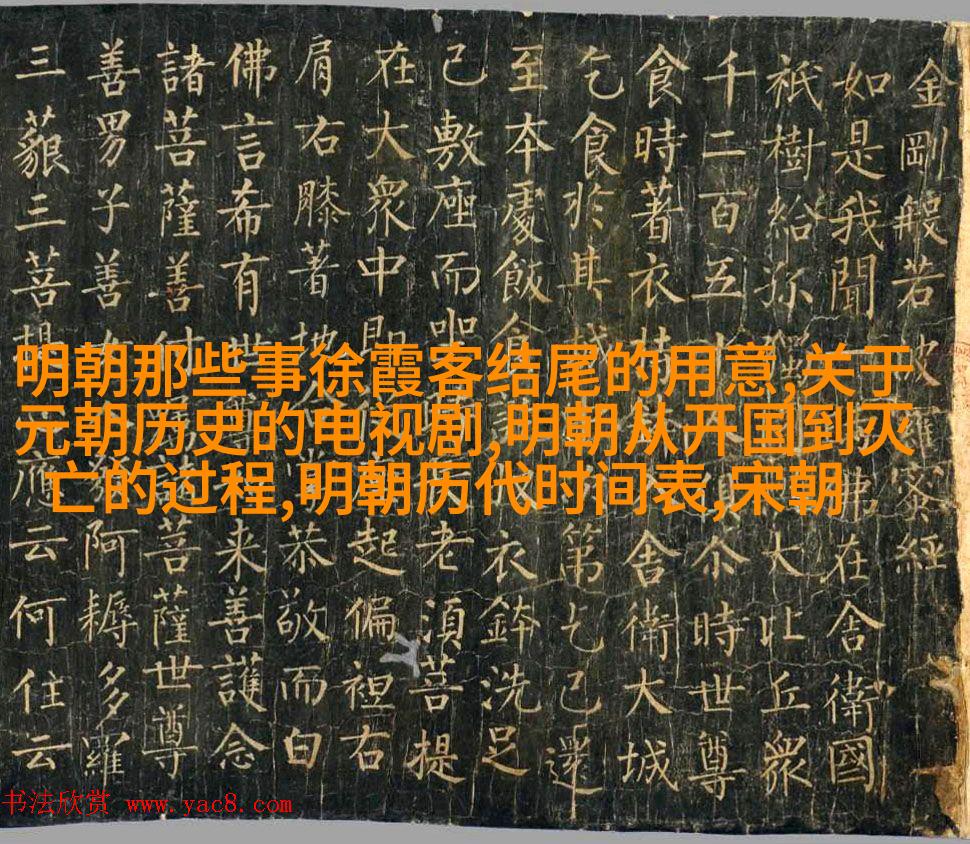 金剛般若波羅蜜經
如是我聞在舍衛國
祇樹給孤大比丘眾
千二百五十尒時世尊
食時著衣持舍衛大城
乞食於其城第乞已還
至本處飯食衣鉢洗足
已敷座而坐老須菩提
在大眾中即起偏袒右
肩右膝著地恭敬而白
佛言希有世来善護念
諸菩薩善付菩薩世尊
善男子善女阿耨多羅
三藐三菩提應云何住云
明朝那些事徐霞客结尾的用意,关于
元朝历史的电视剧,明朝从开国到灭
亡的过程,明朝历代时间表,宋朝
书法欣赏 www.yac8.com